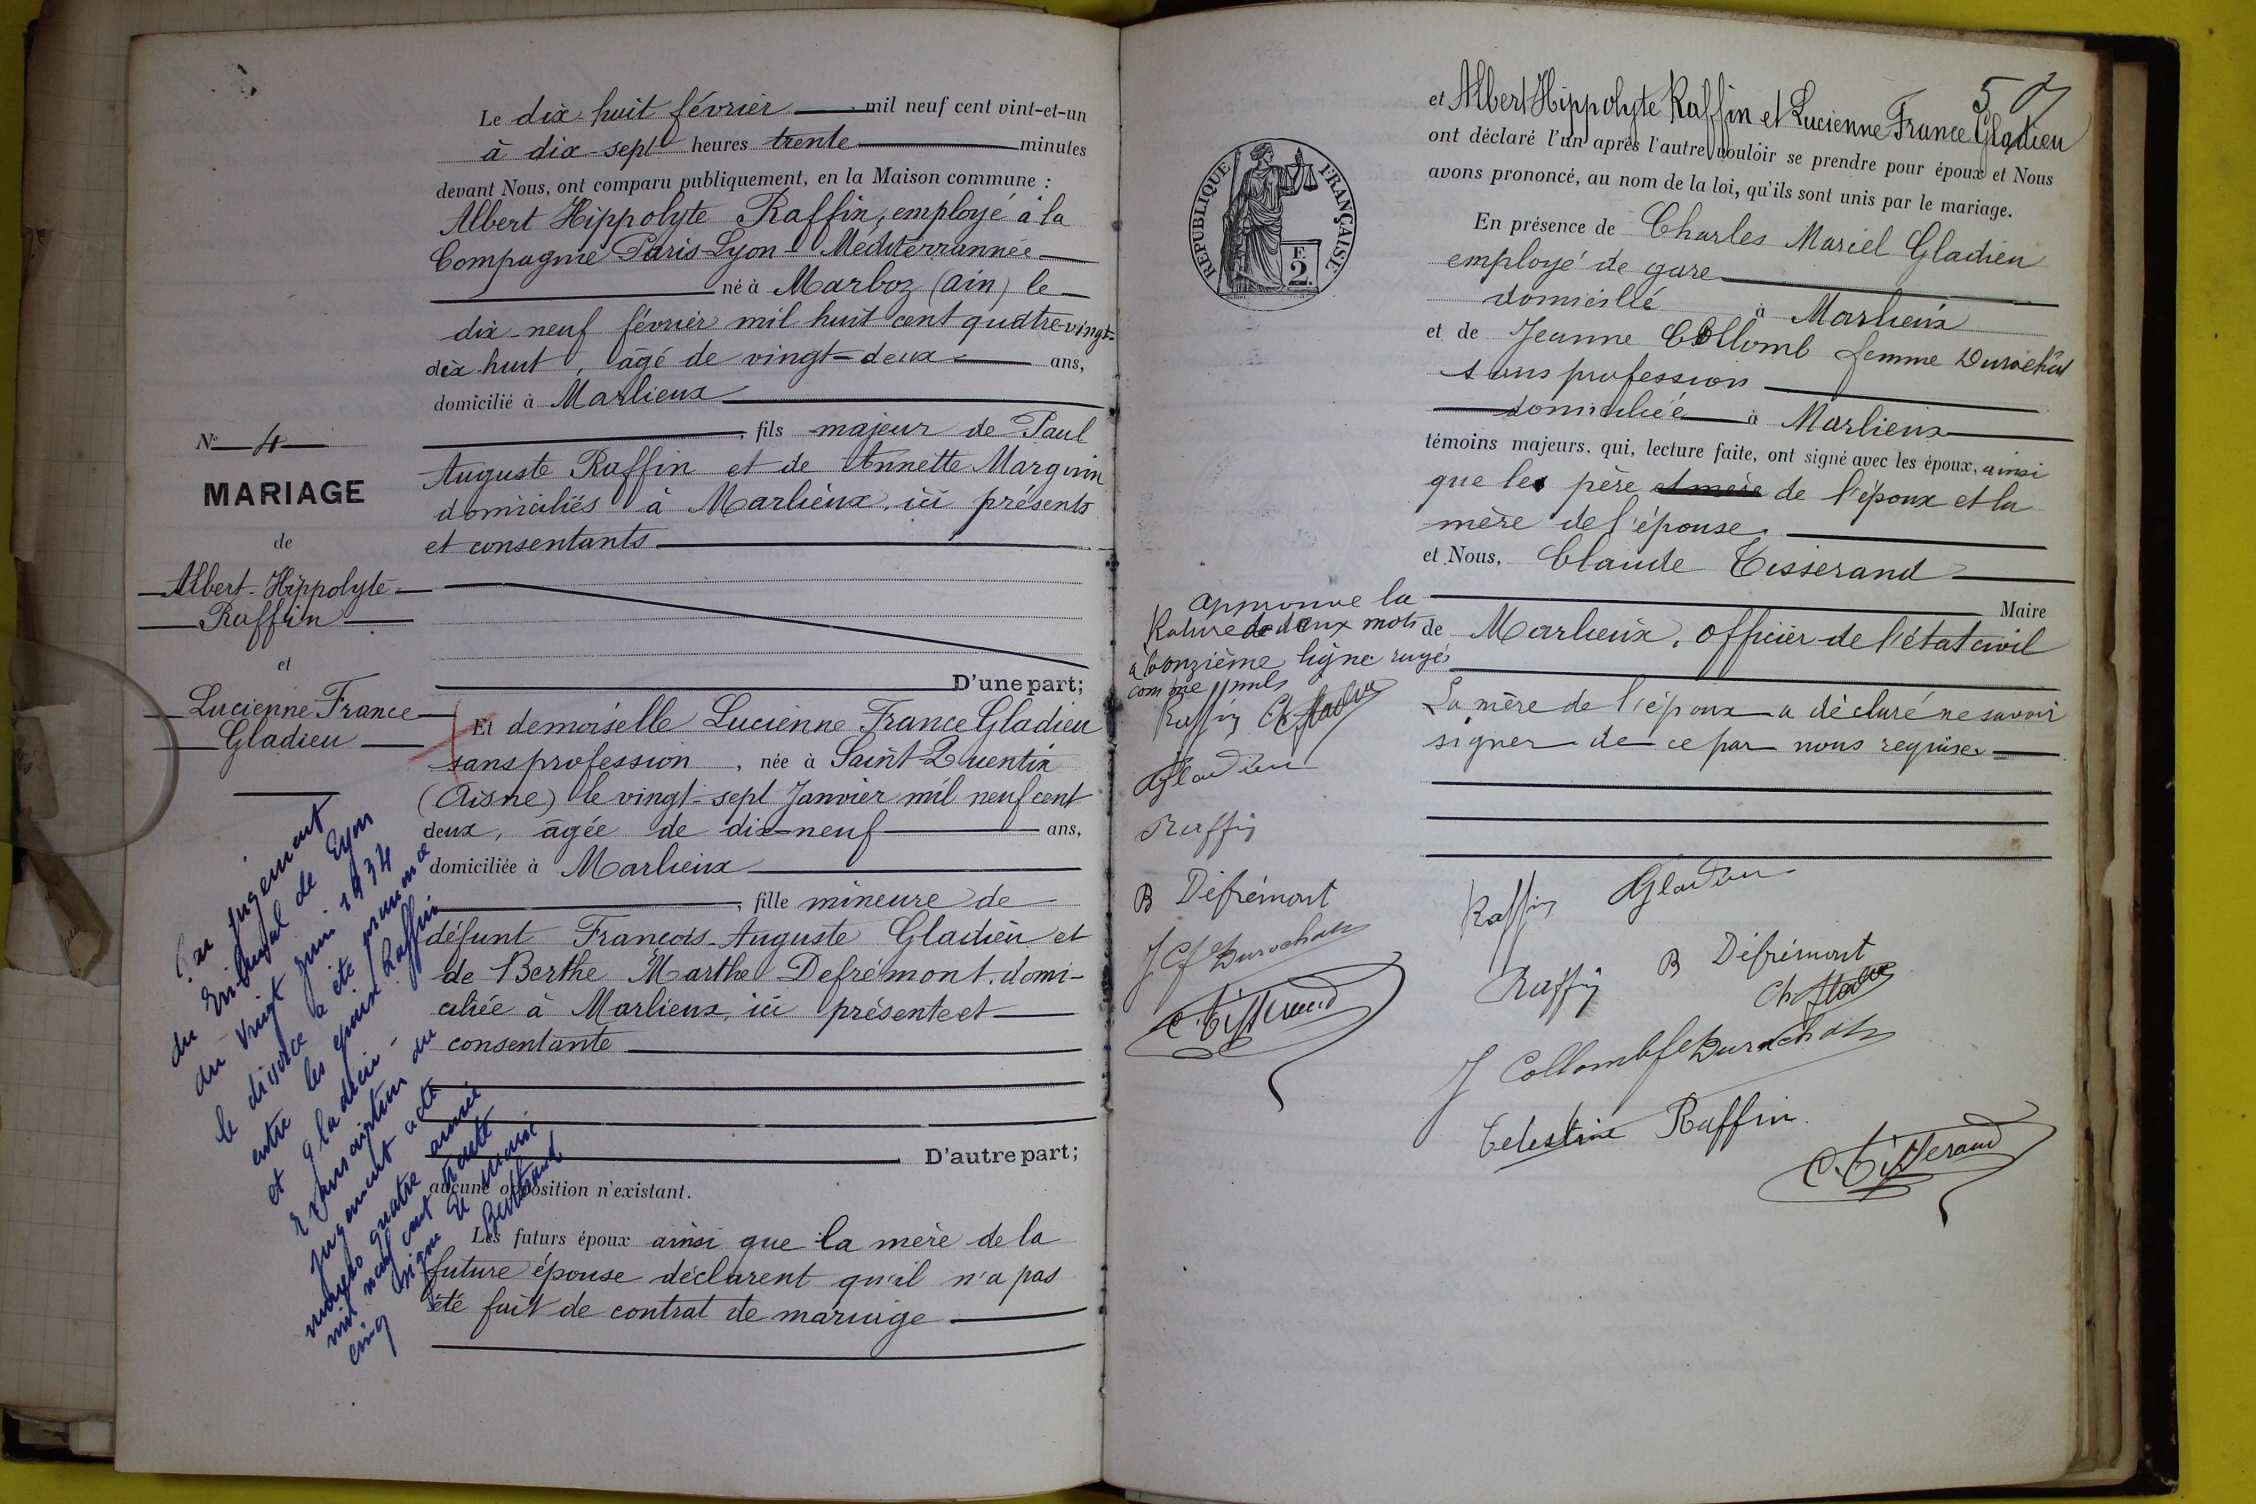 Le dix-huit février mil neuf cent vint-et-un
à dix-sept heures trente minutes
devant Nous, ont comparu publiquement, en la Maison commune :
Albert Hippolyte Raffin, employé à la
Compagnie Paris-Lyon-Méditerrannée
né à Marboz (Ain) le
dix-neuf février mil huit cent quatre-vingt-
dix huit, âgé de vingt-deux ans,
domicilié à Marlieux
, fils majeur de Paul
Auguste Raffin et de Annette Marguin
domiciliés à Marlieux, ici présents
et consentants
D'une part;
Et demoiselle Lucienne France Gladieu
sans profession, née à Saint-Quentin
(Aisne) le vingt-sept Janvier mil neuf cent
deux, âgée de dix-neuf ans,
domiciliée à Marlieux
, fille mineure de
défunt François-Auguste Gladieu et
de Berthe Marthe Defrémont, domi-
ciliée à Marlieux, ici présente et
consentante
D'autre part;
aucune opposition n'existant.
Les futurs époux ainsi que la mère de la
future épouse déclarent qu'il n'a pas
été fait de contrat de mariage
N° 4
MARIAGE
de
Albert-Hippolyte
Raffin
et
Lucienne France
Gladieu
Par jugement
du Tribunal de Lyon
du vingt juin 1934
le divorce a été prononcé
entre les époux Raffin
et Gladieu-
Transcription du
jugement acte
numéro quatre année
mil neuf cent trente
cinq signé le maire
Berthaud
50
et Albert Hippolyte Raffin et Lucienne France Gladieu
ont déclaré l'un après l'autre vouloir se prendre pour époux et Nous
avons prononcé, au nom de la loi, qu'ils sont unis par le mariage.
En présence de Charles Marcel Gladieu
employé de gare
domicilié à Marlieux
et de Jeanne Collomb femme Durochat
sans profession
domiciliée à Marlieux
témoins majeurs, qui, lecture faite, ont signé avec les époux, ainsi
que les père et mère de l'époux et la
mère de l'épouse.
et Nous, Claude Tisserand
Maire
de Marlieux, officier de l'état civil
La mère de l'époux a déclaré ne savoir
signer de ce par nous requise.
RÉPUBLIQUE FRANÇAISE
F.
2.
Approuvé la
Rature de deux mots
à la onzième ligne rayés
comme nuls
Raffin Ch Gladieu
Gladieu
Raffin
B Défrémont
J C fe Durochat
C. Tisserand
Raffin Gladieu
Raffin B Défrémont
Ch Gladieu
J Collomb fe Durochat
Celestine Raffin.
C. Tisserand